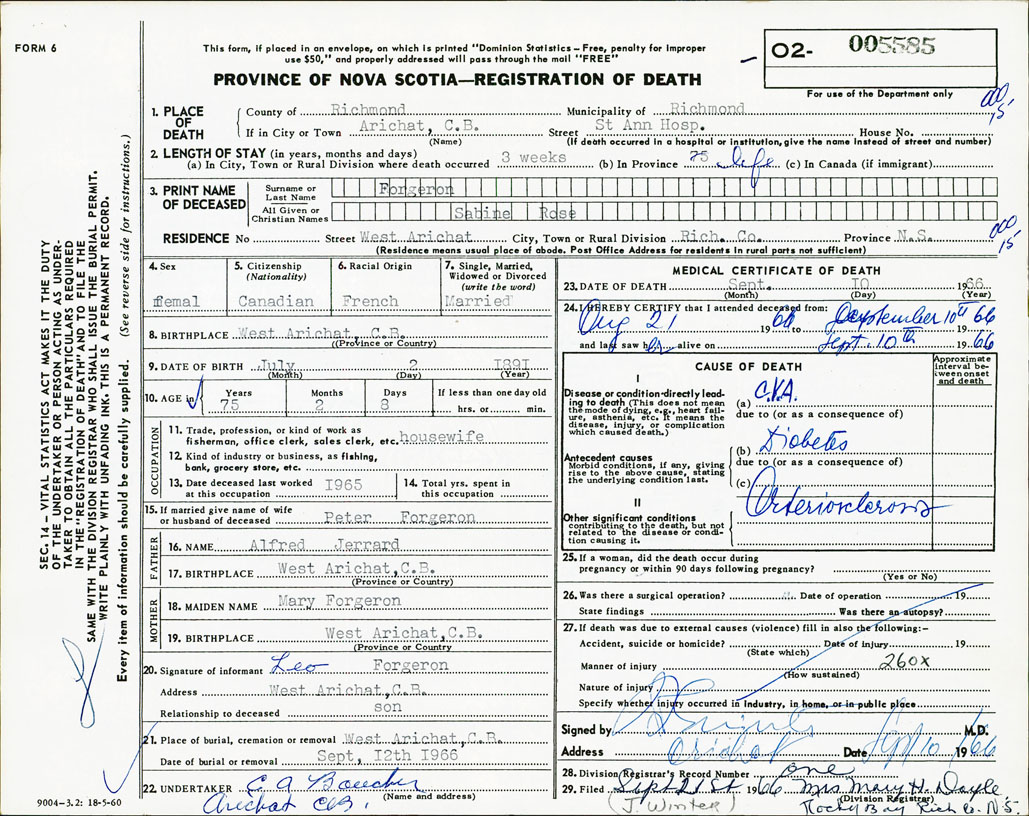 FORM 6
This form, if placed in an envelope, on which is printed "Dominion Statistics – Free, penalty for improper
use $50," and properly addressed will pass through the mail "FREE"
PROVINCE OF NOVA SCOTIA—REGISTRATION OF DEATH
02- 005585
For use of the Department only
1. PLACE OF DEATH
County of Richmond Municipality of Richmond
If in City or Town Arichat, C.B. Street St Ann Hosp. House No.
(Name) (If death occurred in a hospital or institution, give the name instead of street and number)
000
15
2. LENGTH OF STAY (in years, months and days)
(a) In City, Town or Rural Division where death occurred 3 weeks (b) In Province 75 life (c) In Canada (if immigrant)
3. PRINT NAME OF DECEASED
Surname or Last Name Forgeron
All Given or Christian Names Sabine Rose
RESIDENCE No Street West Arichat City, Town or Rural Division Rich. Co. Province N.S.
(Residence means usual place of abode. Post Office Address for residents in rural parts not sufficient)
000
15
4. Sex femal
5. Citizenship (Nationality) Canadian
6. Racial Origin French
7. Single, Married, Widowed or Divorced (write the word) Married
8. BIRTHPLACE West Arichat, C.B.
((Province or Country)
9. DATE OF BIRTH July 2 1891
(Month) (Day) (Year)
10. AGE in Years 75 Months 2 Days 8 If less than one day old hrs. or min.
OCCUPATION
11. Trade, profession, or kind of work as
fisherman, office clerk, sales clerk, etc. housewife
12. Kind of industry or business, as fishing,
bank, grocery store, etc.
13. Date deceased last worked at this occupation I965
14. Total yrs. spent in this occupation
15. If married give name of wife
or husband of deceased Peter Forgeron
FATHER
16. NAME Alfred Jerrard
17. BIRTHPLACE West Arichat,C.B.
(Province or Country)
MOTHER
18. MAIDEN NAME Mary Forgeron
19. BIRTHPLACE West Arichat,C.B.
(Province or Country
20. Signature of informant Leo Forgeron
Address West Arichat,C.B.
Relationship to deceased son
21. Place of burial, cremation or removal West Arichat,C.B.
Date of burial or removal Sept, I2th I966
22. UNDERTAKER C A Boucher
(Name and address)
Arichat CB.
9004–3.2: 18-5-60
MEDICAL CERTIFICATE OF DEATH
23. DATE OF DEATH Sept. I0 1966
(Month) (Day) (Year)
24. I HEREBY CERTIFY that I attended deceased from:
Aug 21 1966 September 10th 1966
and last saw her alive on Sept. 10th 1966
CAUSE OF DEATH
Approximate interval between onset and death
I
Disease or condition directly leading to death (This does not mean the mode of dying, e.g., heart failure, asthenia, etc. It means the disease, injury, or complication which caused death.)
(a) C.V.A.
due to (or as a consequence of)
Antecedent causes
Morbid conditions, if any, giving rise to the above cause, stating the underlying condition last.
(b) Diabetes
due to (or as a consequence of)
(c)
Arteriosclerosis
II
Other significant conditions
contributing to the death, but not related to the disease or condition causing it.
25. If a woman, did the death occur during
pregnancy or within 90 days following pregnancy?
(Yes or No)
26. Was there a surgical operation? Date of operation 19
State findings Was there an autopsy?
27. If death was due to external causes (violence) fill in also the following:–
Accident, suicide or homicide? Date of injury 19
(State which)
Manner of injury 260X
(How sustained)
Nature of injury
Specify whether injury occurred in industry, in home, or in public place
Signed by M.D.
Address Arichat Date Sept 10 1966
28. Division Registrar's Record Number one
29. Filed Sept 21st 1966 Mrs Mary H. Doyle
(Division Registrar)
(J. Winter) Rocky Bay Rich Co. N.S.
SEC. 14 – VITAL STATISTICS ACT MAKES IT THE DUTY
OF THE UNDERTAKER OR PERSON ACTING AS UNDER-
TAKER TO OBTAIN ALL THE PARTICULARS REQUIRED
IN THE "REGISTRATION OF DEATH" AND TO FILE THE
SAME WITH THE DIVISION REGISTRAR WHO SHALL ISSUE THE BURIAL PERMIT.
WRITE PLAINLY WITH UNFADING INK. THIS IS A PERMANENT RECORD.
Every item of information should be carefully supplied. (See reverse side for instructions.)